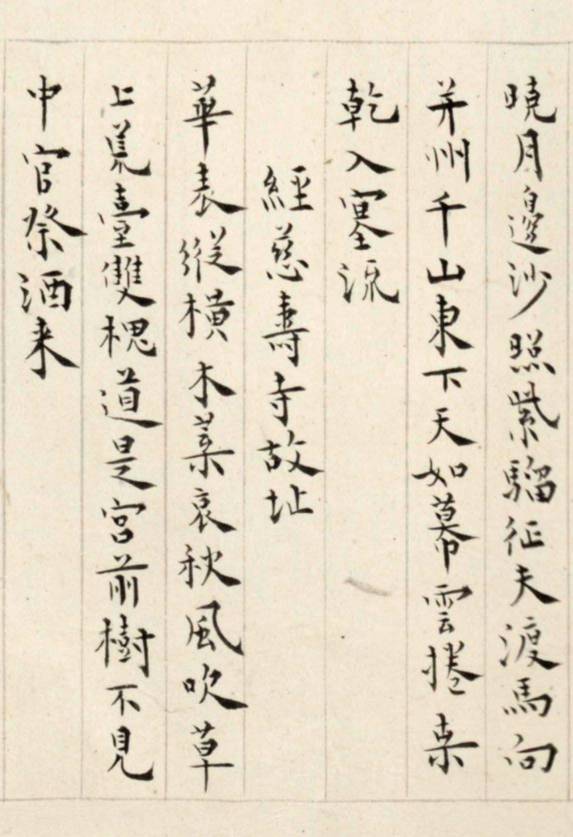 曉月邊沙照紫騮征夫渡馬向
并州千山東下天如幕雲捲桑
乾入塞流
經慈壽寺故址
華表縱橫木葉哀秋風吹草
上荒臺雙槐道是宮前樹不見
中官祭酒来